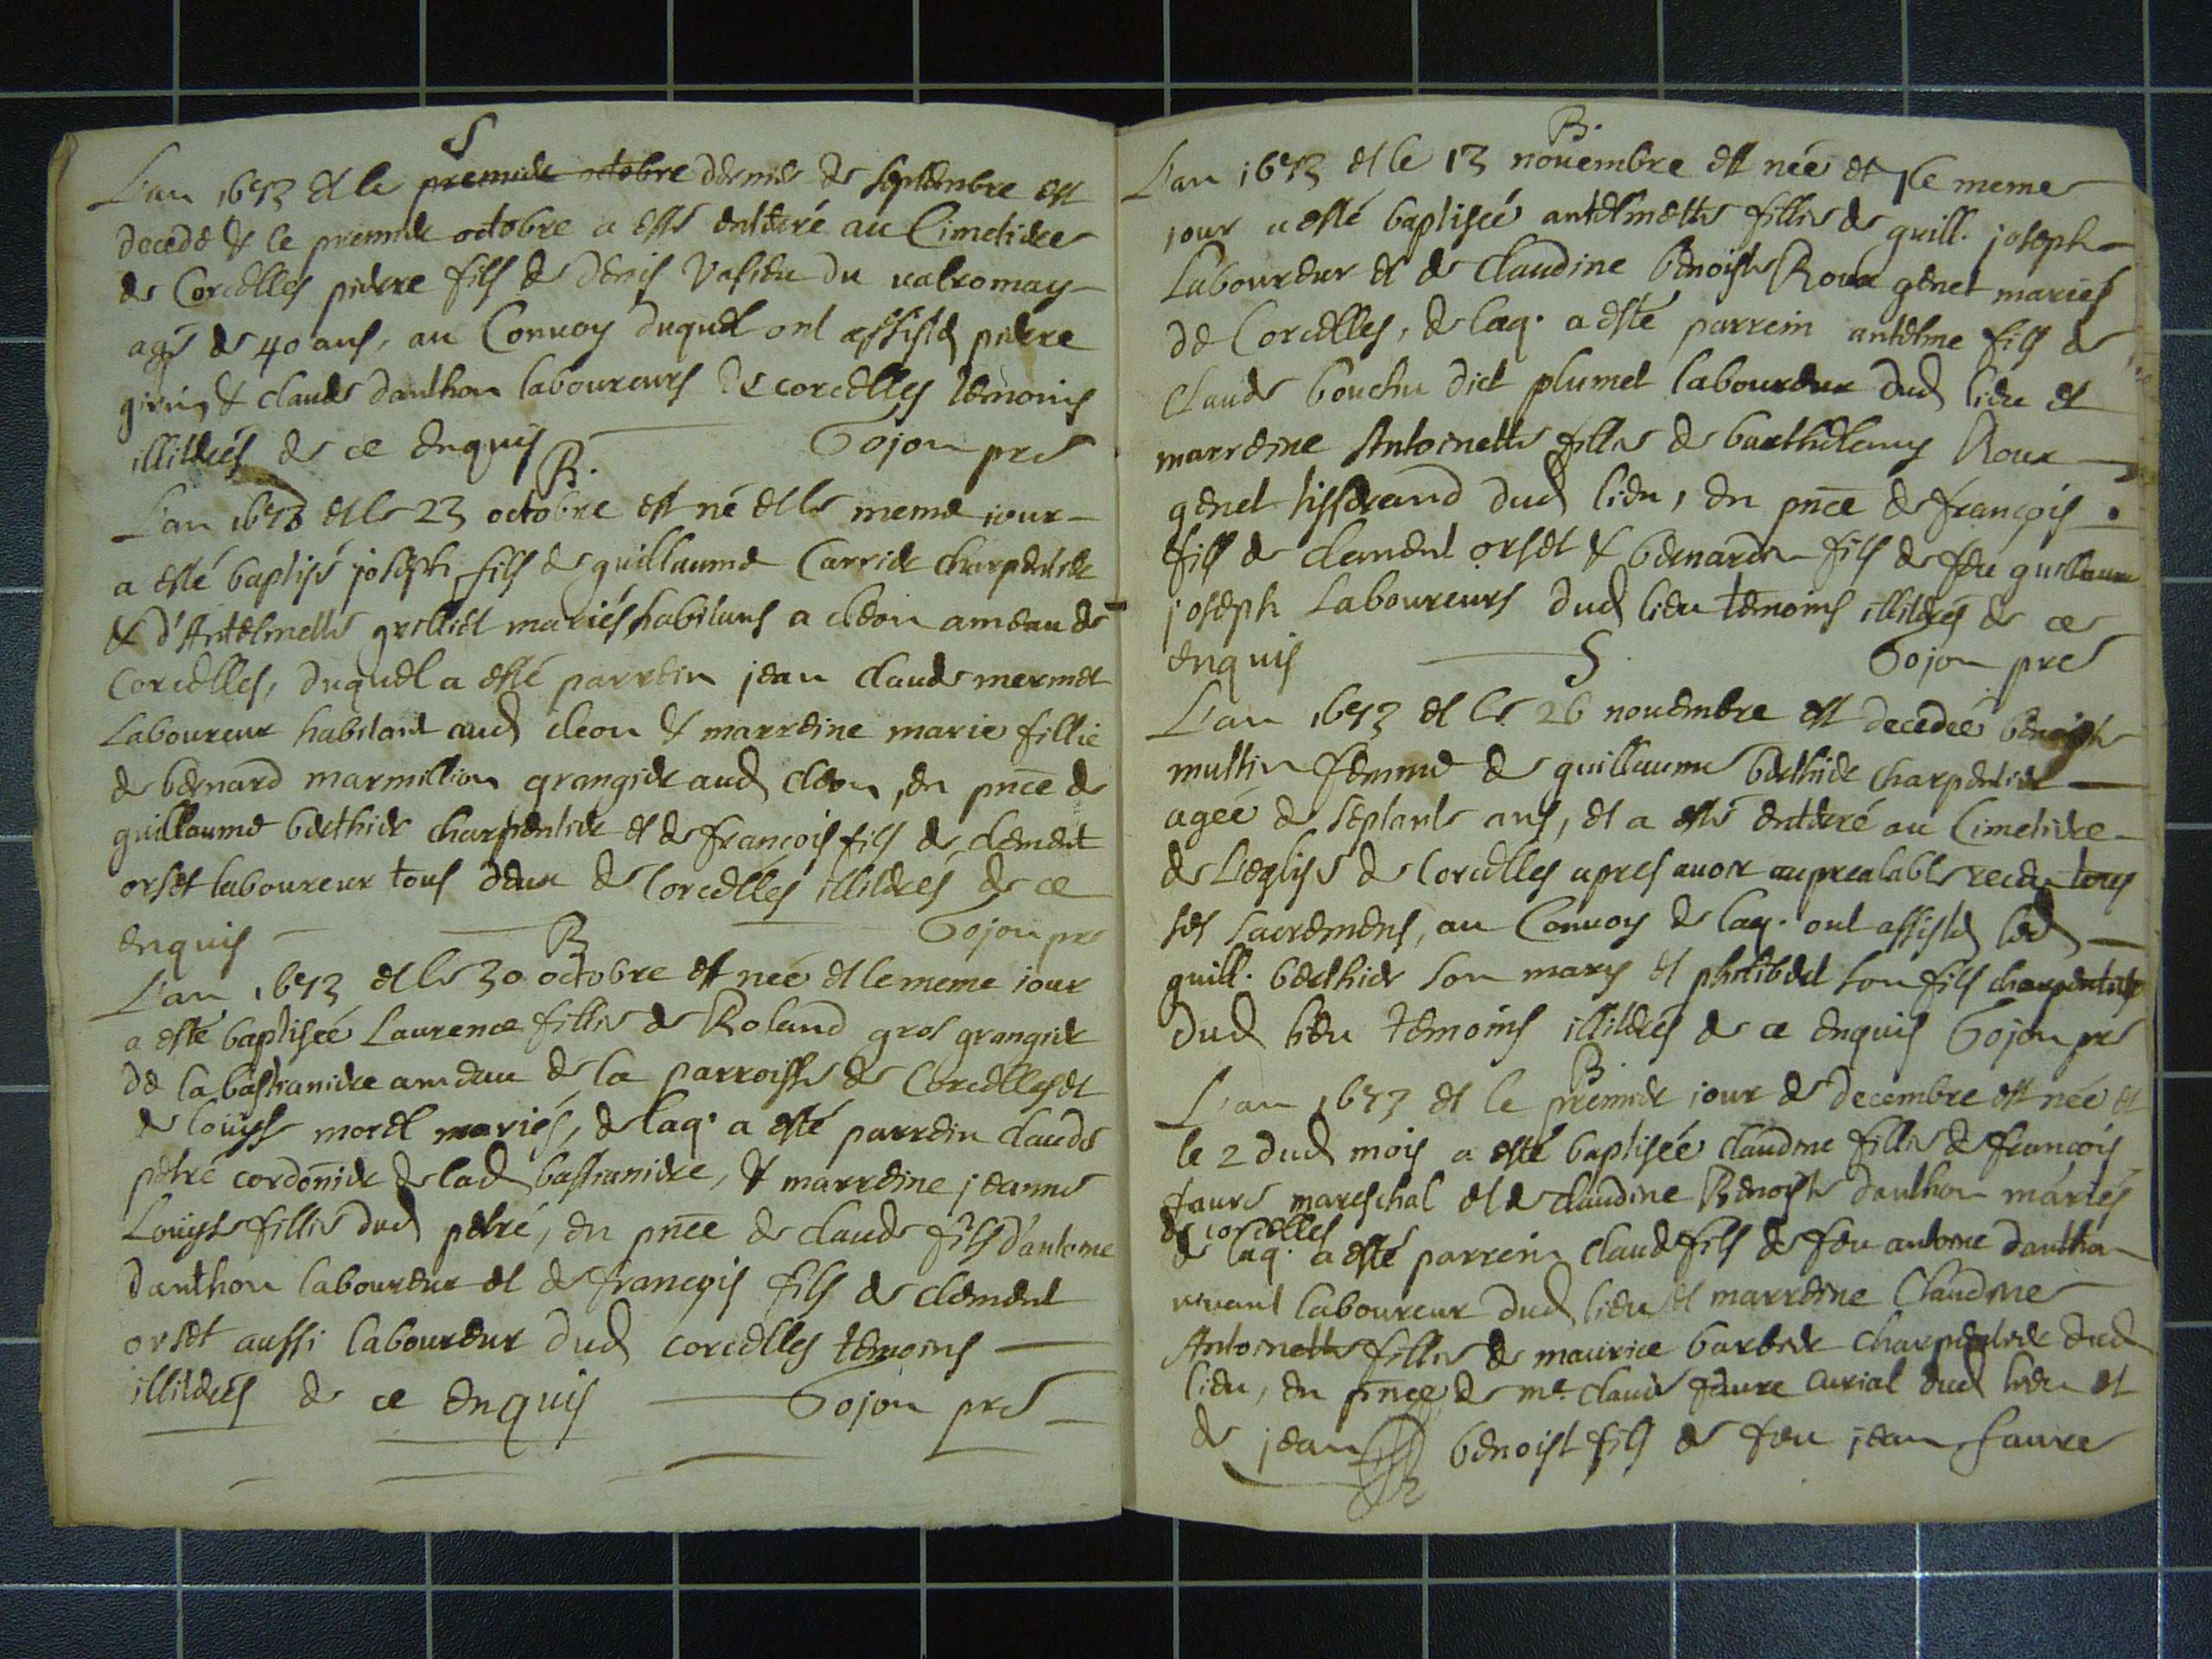 S
L'an 1673 et le premier octobre dernier de septembre est
decedé & le premier octobre a esté enterré au Cimetiere
de Corcelles pierre fils de denis Vasieu du valromay
agé de 40 ans, au Convoy duquel ont assisté pierre
girin & claude danthon laboureurs de corcelles temoins
illitrés de ce enquis Gojon pre
B.
L'an 1673 et le 23 octobre est né et le meme iour
a esté baptisé joseph fils de guillaume Carrier charpentier
& d'Antelmette grilliet mariés habitans a cleon ameau de
Corcelles, duquel a esté parrein jean claude mermet
Laboureur habitant aud cleon & marreine marie fillie
de bernard marmillion grangier aud cleon, en pnce de
guillaume berthier charpentier et de françois fils de clement
orset laboureur tous deux de Corcelles illitrés de ce
enquis Gojon pre
B
L'an 1673 et le 30 octobre est neé et le meme iour
a esté baptiseé Laurence fillie de Roland gros grangier
de la bastianiere ameau de la parroisse de Corcelles et
de louyse morel mariés, de laq. a esté parrein claude
petré cordonier de lad bastianiere, & marreine jeanne
Louyse fillie dud petré, en pnce de claude fils d'antoine
danthon laboureur et de françois fils de clement
orset aussi laboureur dud corcelles temoins
illitrés de ce enquis Gojon pre
B.
L'an 1673 et le 13 novembre est neé et le meme
jour a esté baptiseé antelmette fillie de guill. joseph
Laboureur et de claudine benoiste Roux genet mariés
de Corcelles, de laq. a esté parrein antelme fils de
Claude bouchu dict plumet laboureur dud lieu et
marreine Antoinette fillie de barthelemy Roux
genet tisserand dud lieu, en pnce de françois
fils de clement orset & bernardin fils de feu guillaume
joseph Laboureurs dud lieu temoins illitrés de ce
enquis Gojon pre
S
L'an 1673 et le 26 novembre est decedeé benoiste
multin femme de guillaume berthier charpentier
ageé de septante ans, et a esté enterré au Cimetiere
de L'eglise de Corcelles apres avoir au prealable receu tous
ses sacremens, au Convoy de laq. ont assisté led
guill. berthier son mary et philibert son fils charpentiers
dud lieu temoins illitrés de ce enquis Gojon pre
B.
L'an 1673 et le premier iour de decembre est neé et
le 2 dud mois a esté baptiseé claudine fillie de françois
faure mareschal et de claudine Benoiste danthon mariés
de corcelles
de laq. a esté parrein claude fils de feu antoine danthon
vivant laboureur dud lieu et marreine Claudine
Antoinette fillie de maurice barbier charpentier dud
lieu, en pnce de me. claude faure curial dud lieu et
de jean benoist fils de feu jean faure